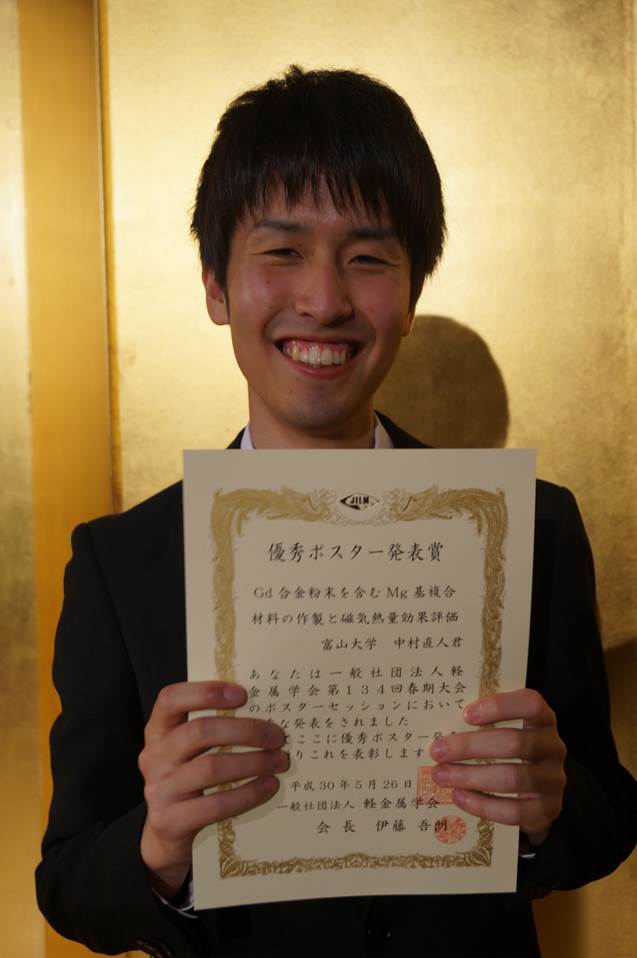 JILM
優秀ポスター発表賞
Gd合金粉末を含むMg基複合
材料の作製と磁気熱量効果評価
富山大学 中村直人君
あなたは一般社団法人軽
金属学会第134回春期大会
のポスターセッションにおいて
な発表をされました
てここに優秀ポスター発表
りこれを表彰します
平成30年5月26日
一般社団法人 軽金属学会
会長 伊藤吾朗